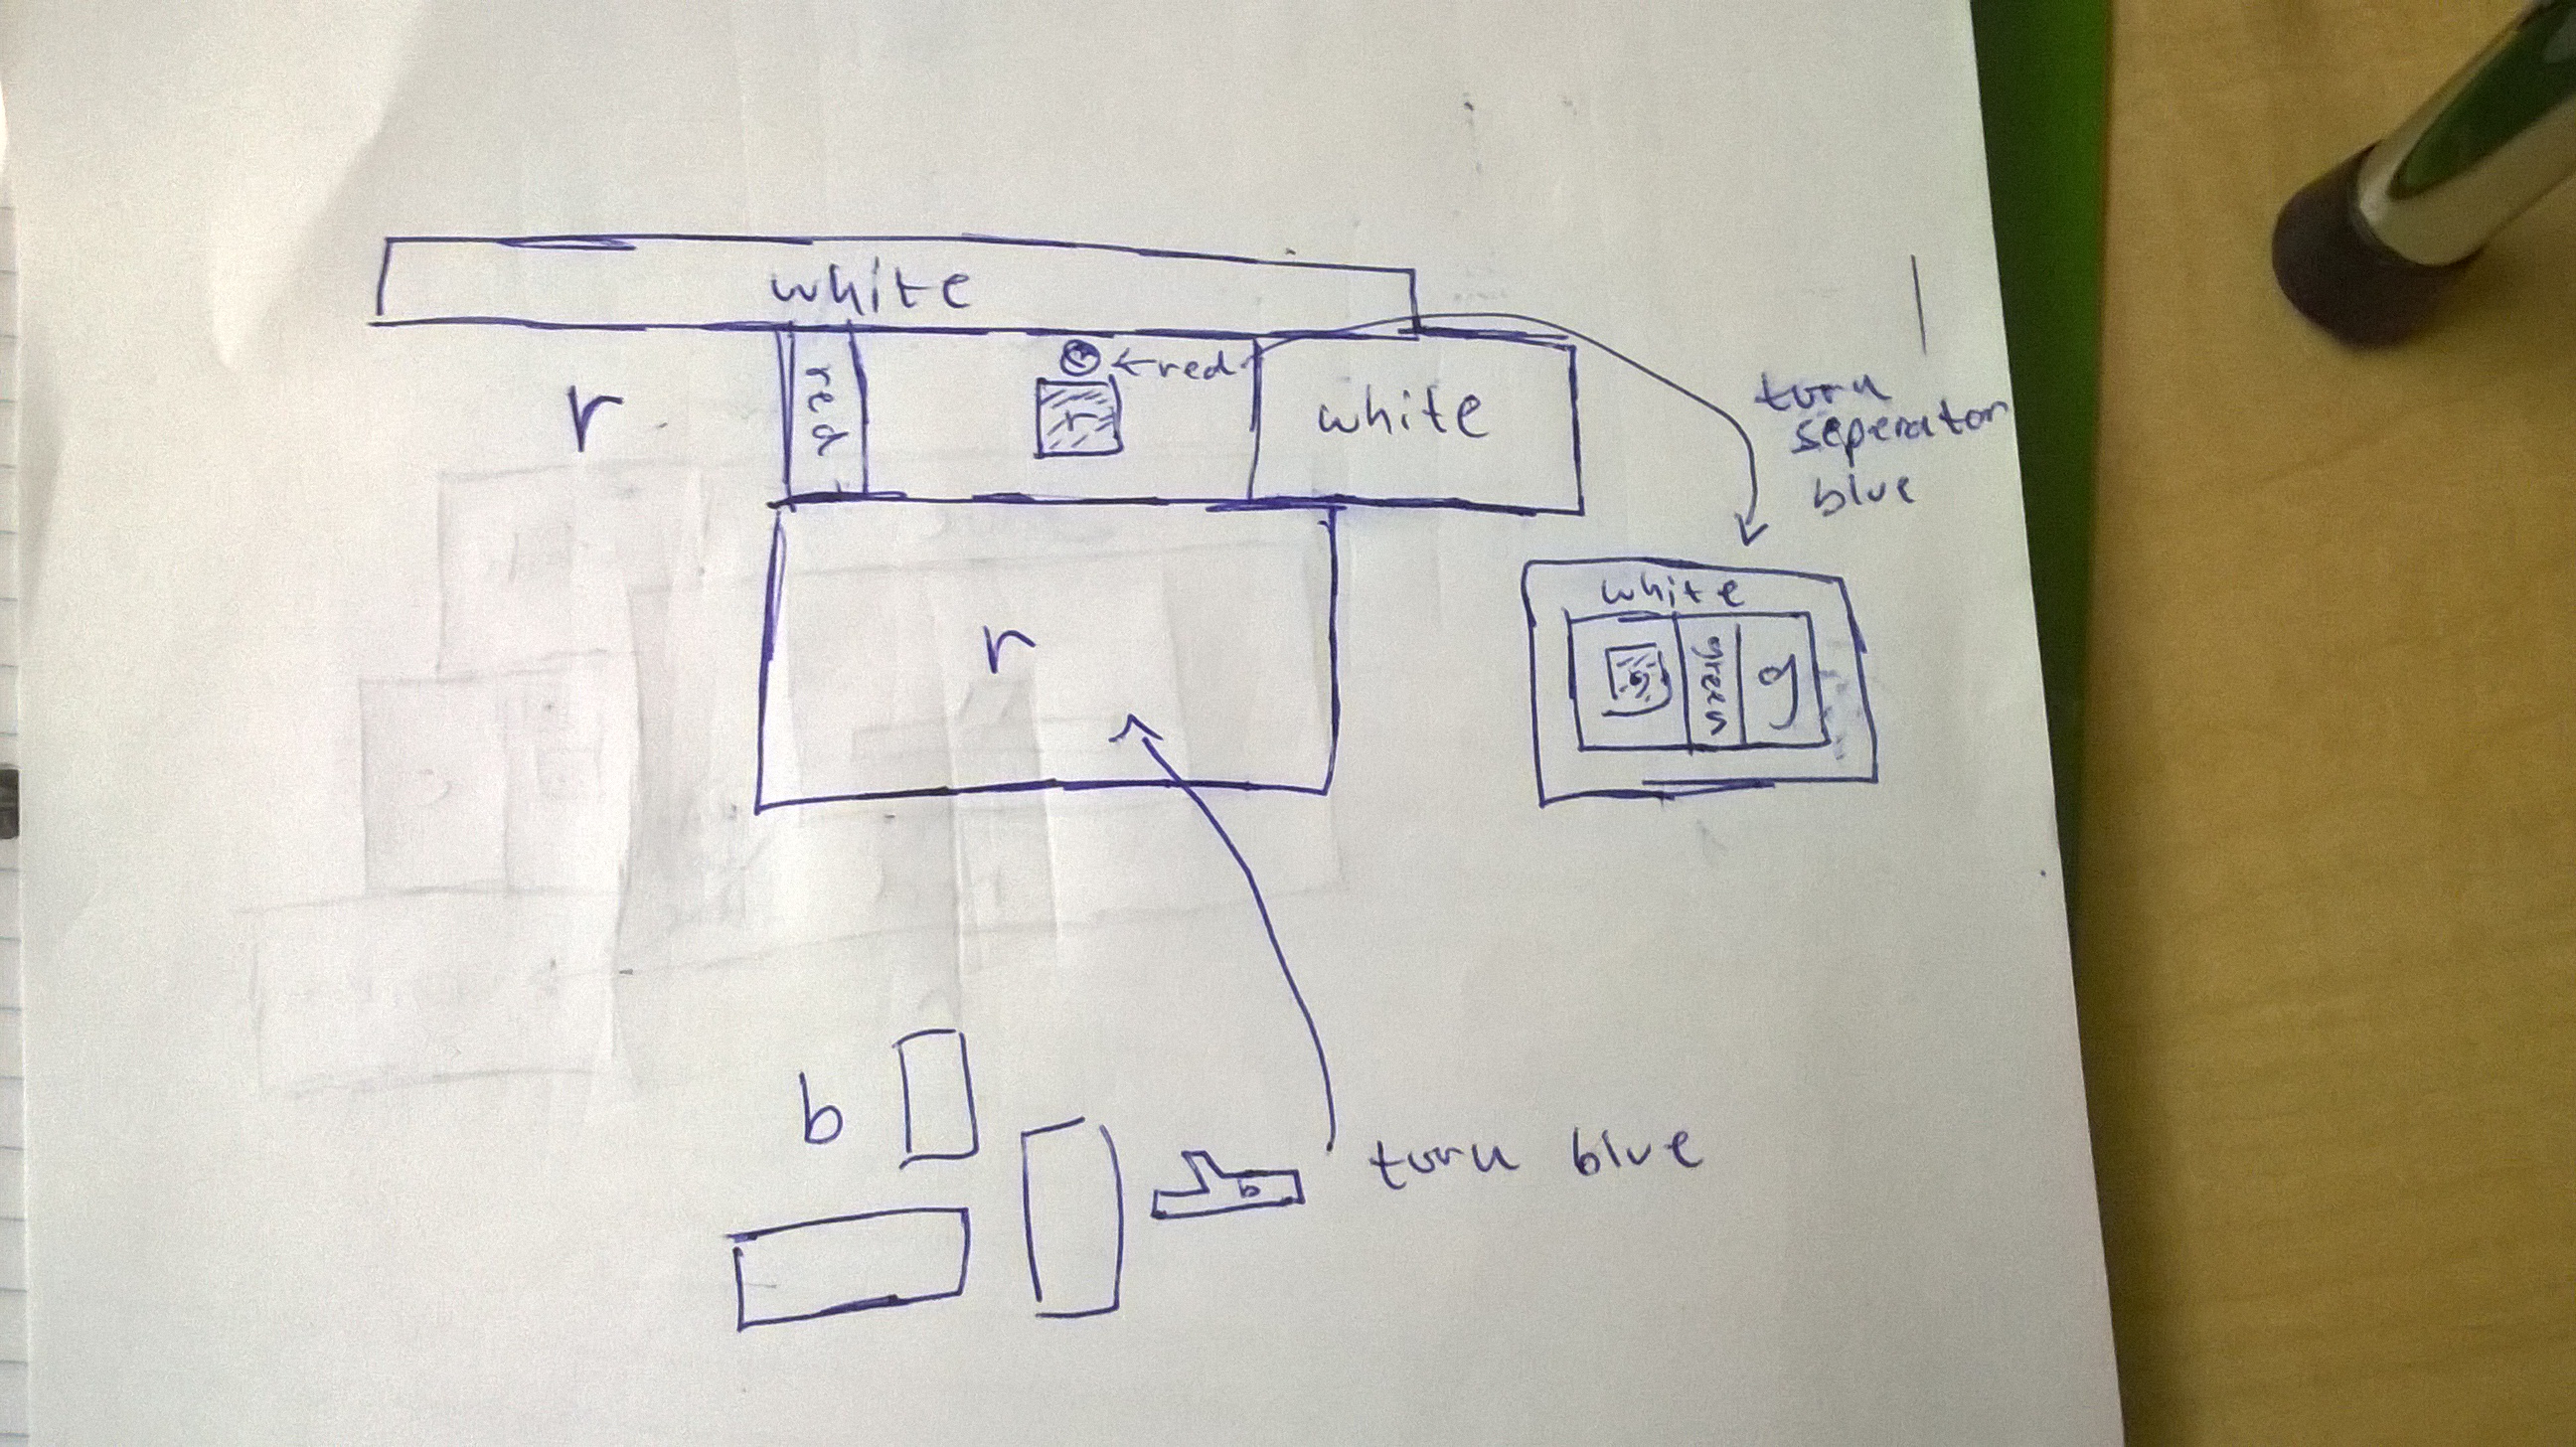 white
r
red
← red
r
white
turn
seperator
blue
r
white
g
green
g
b
b
turn blue